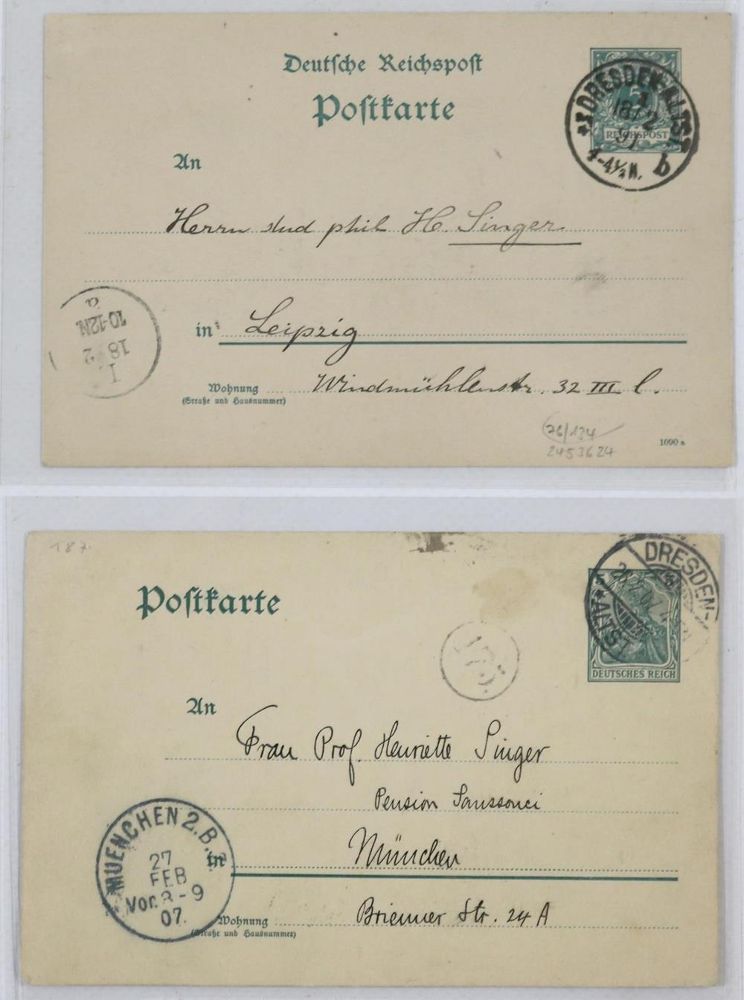 Deutsche Reichspost
Postkarte
5
REICHSPOST
* DRESDEN-ALTST. *
1
18/2
91
4-4½N. b
An
Herrn stud phil H. Singer
in Leipzig
I.
18 2
10-12N.
a
Wohnung
(Straße und Hausnummer)
Windmühlenstr. 32 III l.
76/124
2453624
1090 a
187.
Postkarte
DRESDEN-
ALTST.
DEUTSCHES REICH
175.
An
Frau Prof. Henriette Singer
Pension Sanssouci
in München
MUENCHEN 2. B.
27
FEB
Vor. 8-9
07.
Wohnung
(Straße und Hausnummer)
Brienner Str. 24 A